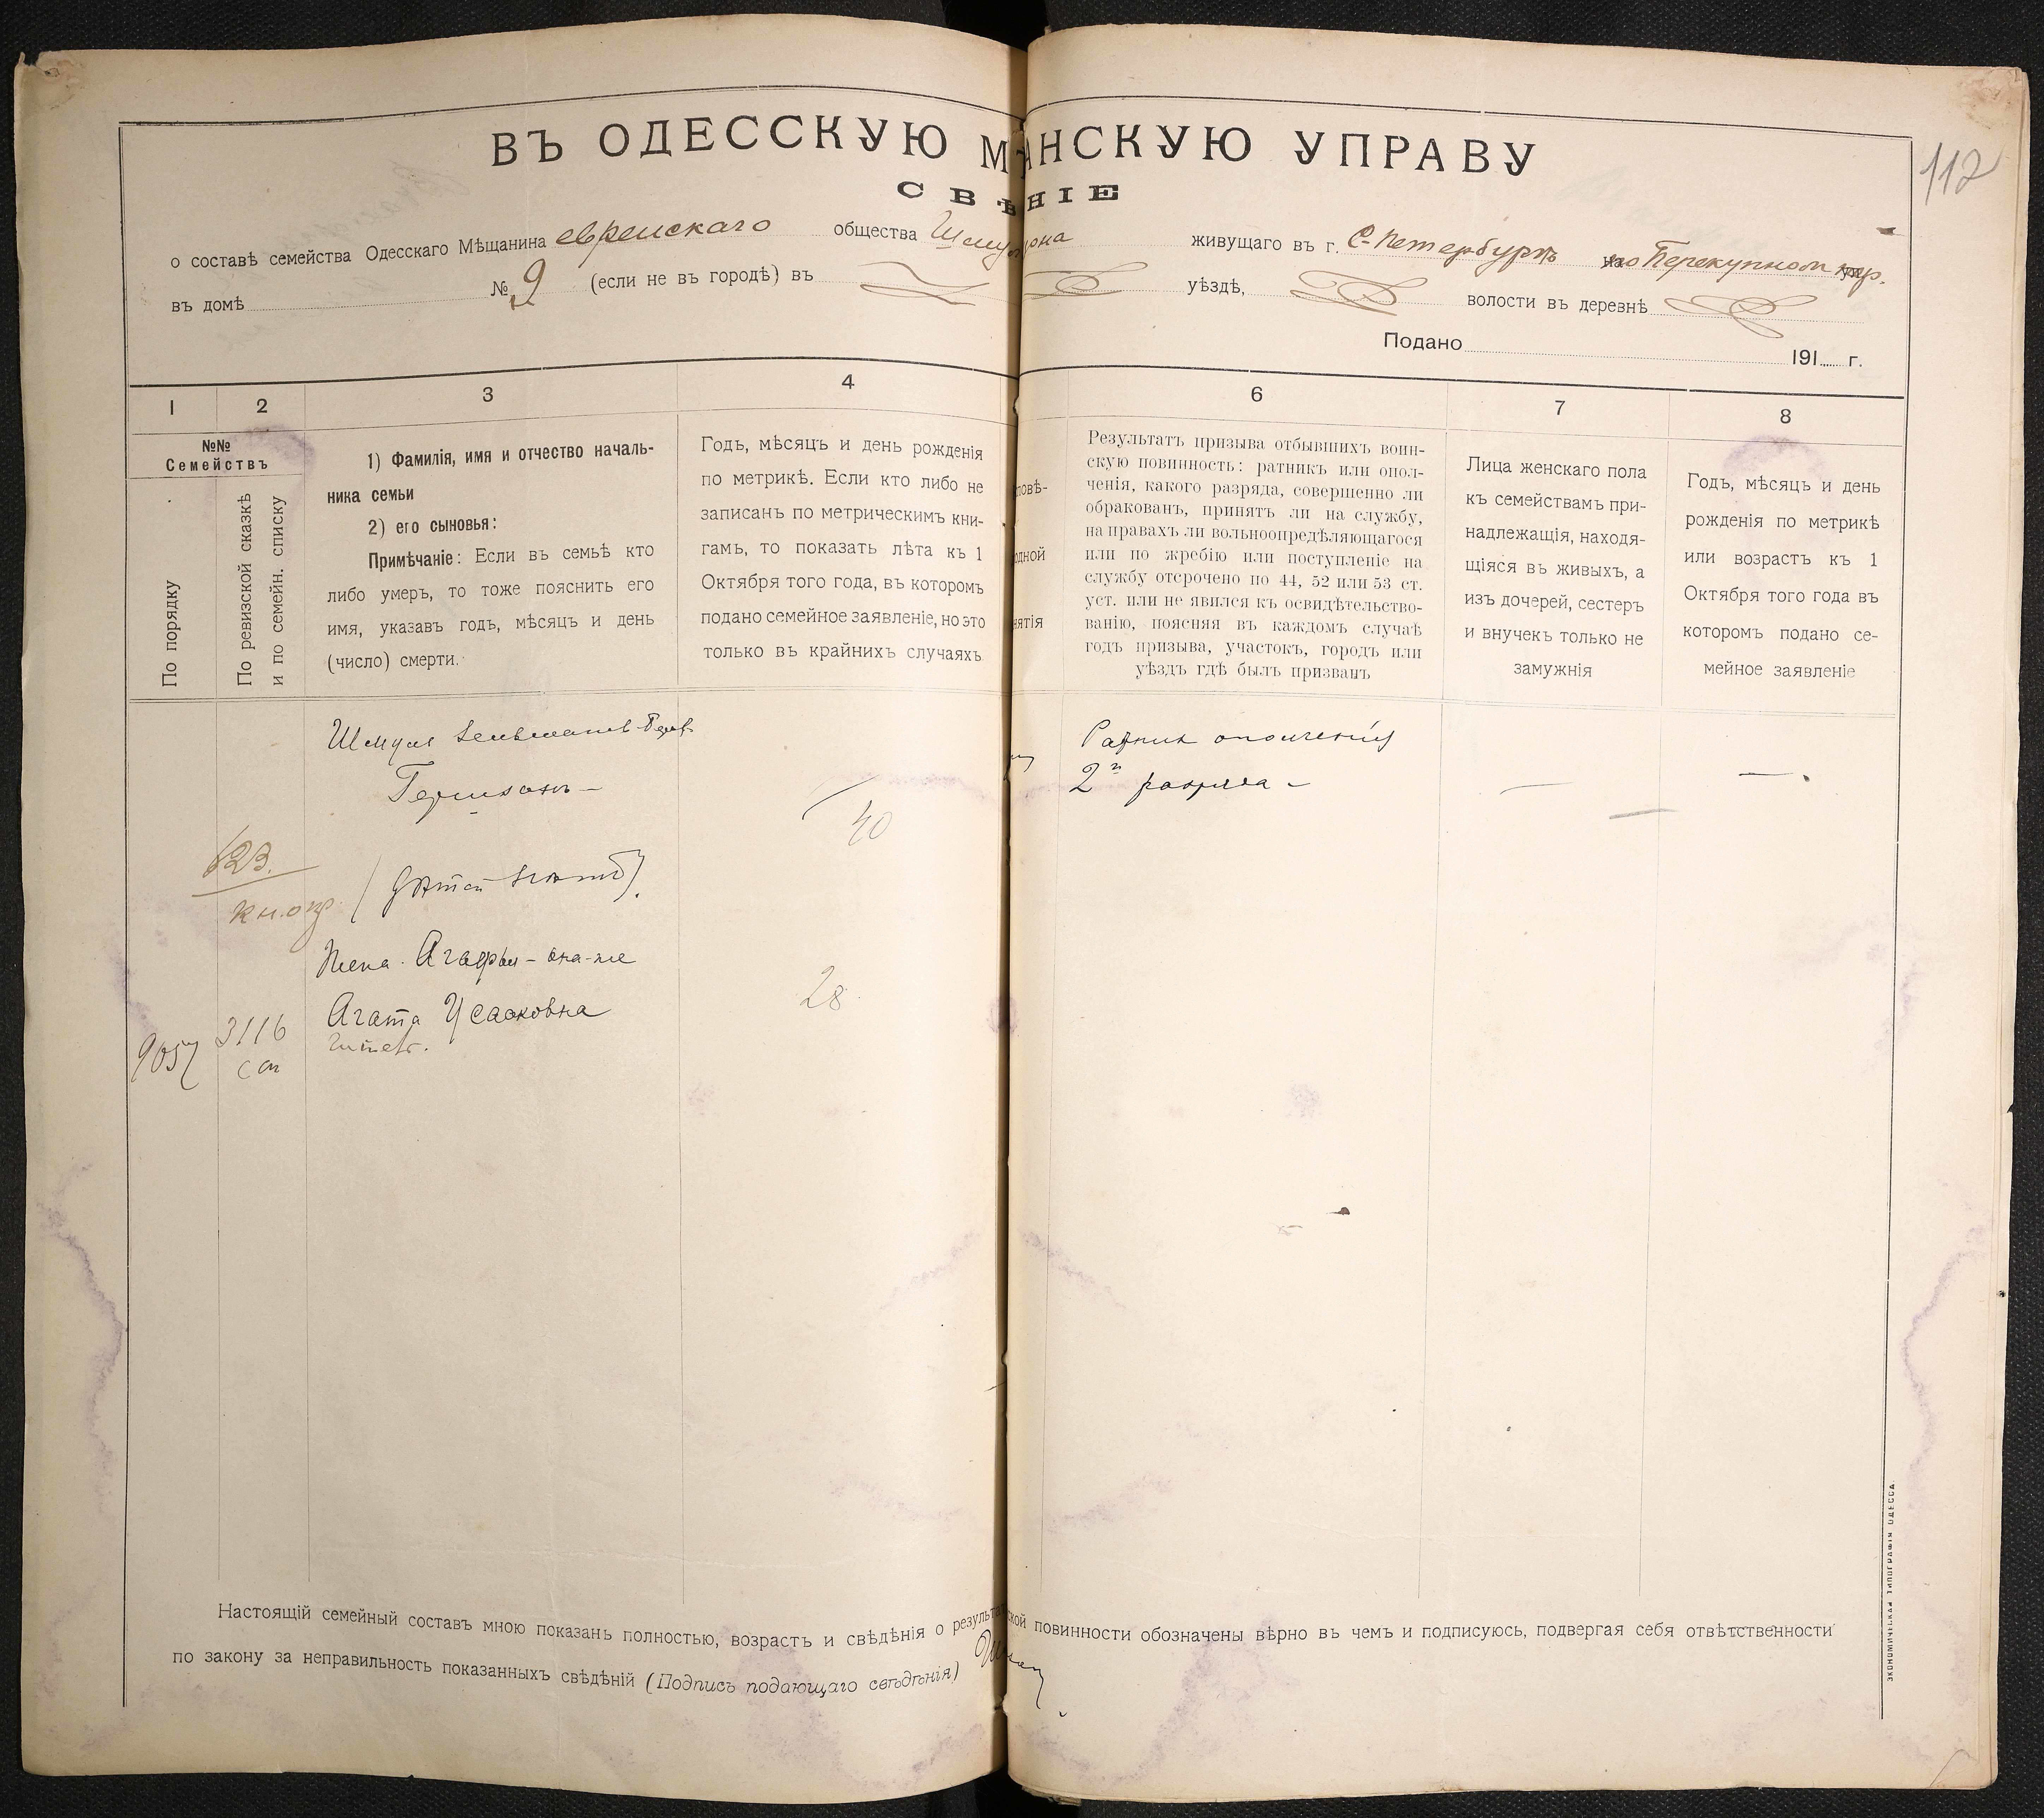 ВЪ ОДЕССКУЮ М АНСКУЮ УПРАВУ
СВѢ НІЕ
112
о составѣ семейства Одесскаго Мѣщанина еврейскаго общества живущаго въ г. С-Петербургѣ по Перекупном пер.
въ домѣ № 9 (если не въ городѣ) въ уѣздѣ, волости въ деревнѣ
Подано 191 г.
1 2 3 4 6 7 8
№№
Семействъ
По порядку
По ревизской сказкѣ
и по семейн. списку
1) Фамилія, имя и отчество началь-
ника семьи
2) его сыновья:
Примѣчаніе: Если въ семьѣ кто
либо умеръ, то тоже пояснить его
имя, указавъ годъ, мѣсяцъ и день
(число) смерти.
Годъ, мѣсяцъ и день рожденія
по метрикѣ. Если кто либо не
записанъ по метрическимъ кни-
гамъ, то показать лѣта къ 1
Октября того года, въ которомъ
подано семейное заявленіе, но это
только въ крайнихъ случаяхъ
повѣ-
одной
нятія
Результатъ призыва отбывшихъ воин-
скую повинность: ратникъ или опол-
ченія, какого разряда, совершенно ли
обракованъ, принятъ ли на службу,
на правахъ ли вольноопредѣляющагося
или по жребію или поступленіе на
службу отсрочено по 44, 52 или 53 ст.
уст. или не явился къ освидѣтельство-
ванію, поясняя въ каждомъ случаѣ
годъ призыва, участокъ, городъ или
уѣздъ гдѣ былъ призванъ
Лица женскаго пола
къ семействамъ при-
надлежащія, находя-
щіяся въ живыхъ, а
изъ дочерей, сестеръ
и внучекъ только не
замужнія
Годъ, мѣсяцъ и день
рожденія по метрикѣ
или возрастъ къ 1
Октября того года въ
которомъ подано се-
мейное заявленіе
Шмуль
Гершконъ –
40
Ратник ополченія
2й разряда –
623.
кн.
(Дѣтей нѣтъ).
Жена Агафья – она-же
Агата Исааковна
28
9057
3116
сп
Настоящій семейный составъ мною показанъ полностью, возрастъ и свѣдѣнія о результа ской повинности обозначены вѣрно въ чемъ и подписуюсь, подвергая себя отвѣтственности
по закону за неправильность показанныхъ свѣдѣній (Подпись подающаго свѣдѣнія)
ЭКОНОМИЧЕСКАЯ ТИПОГРАФІЯ ОДЕССА.